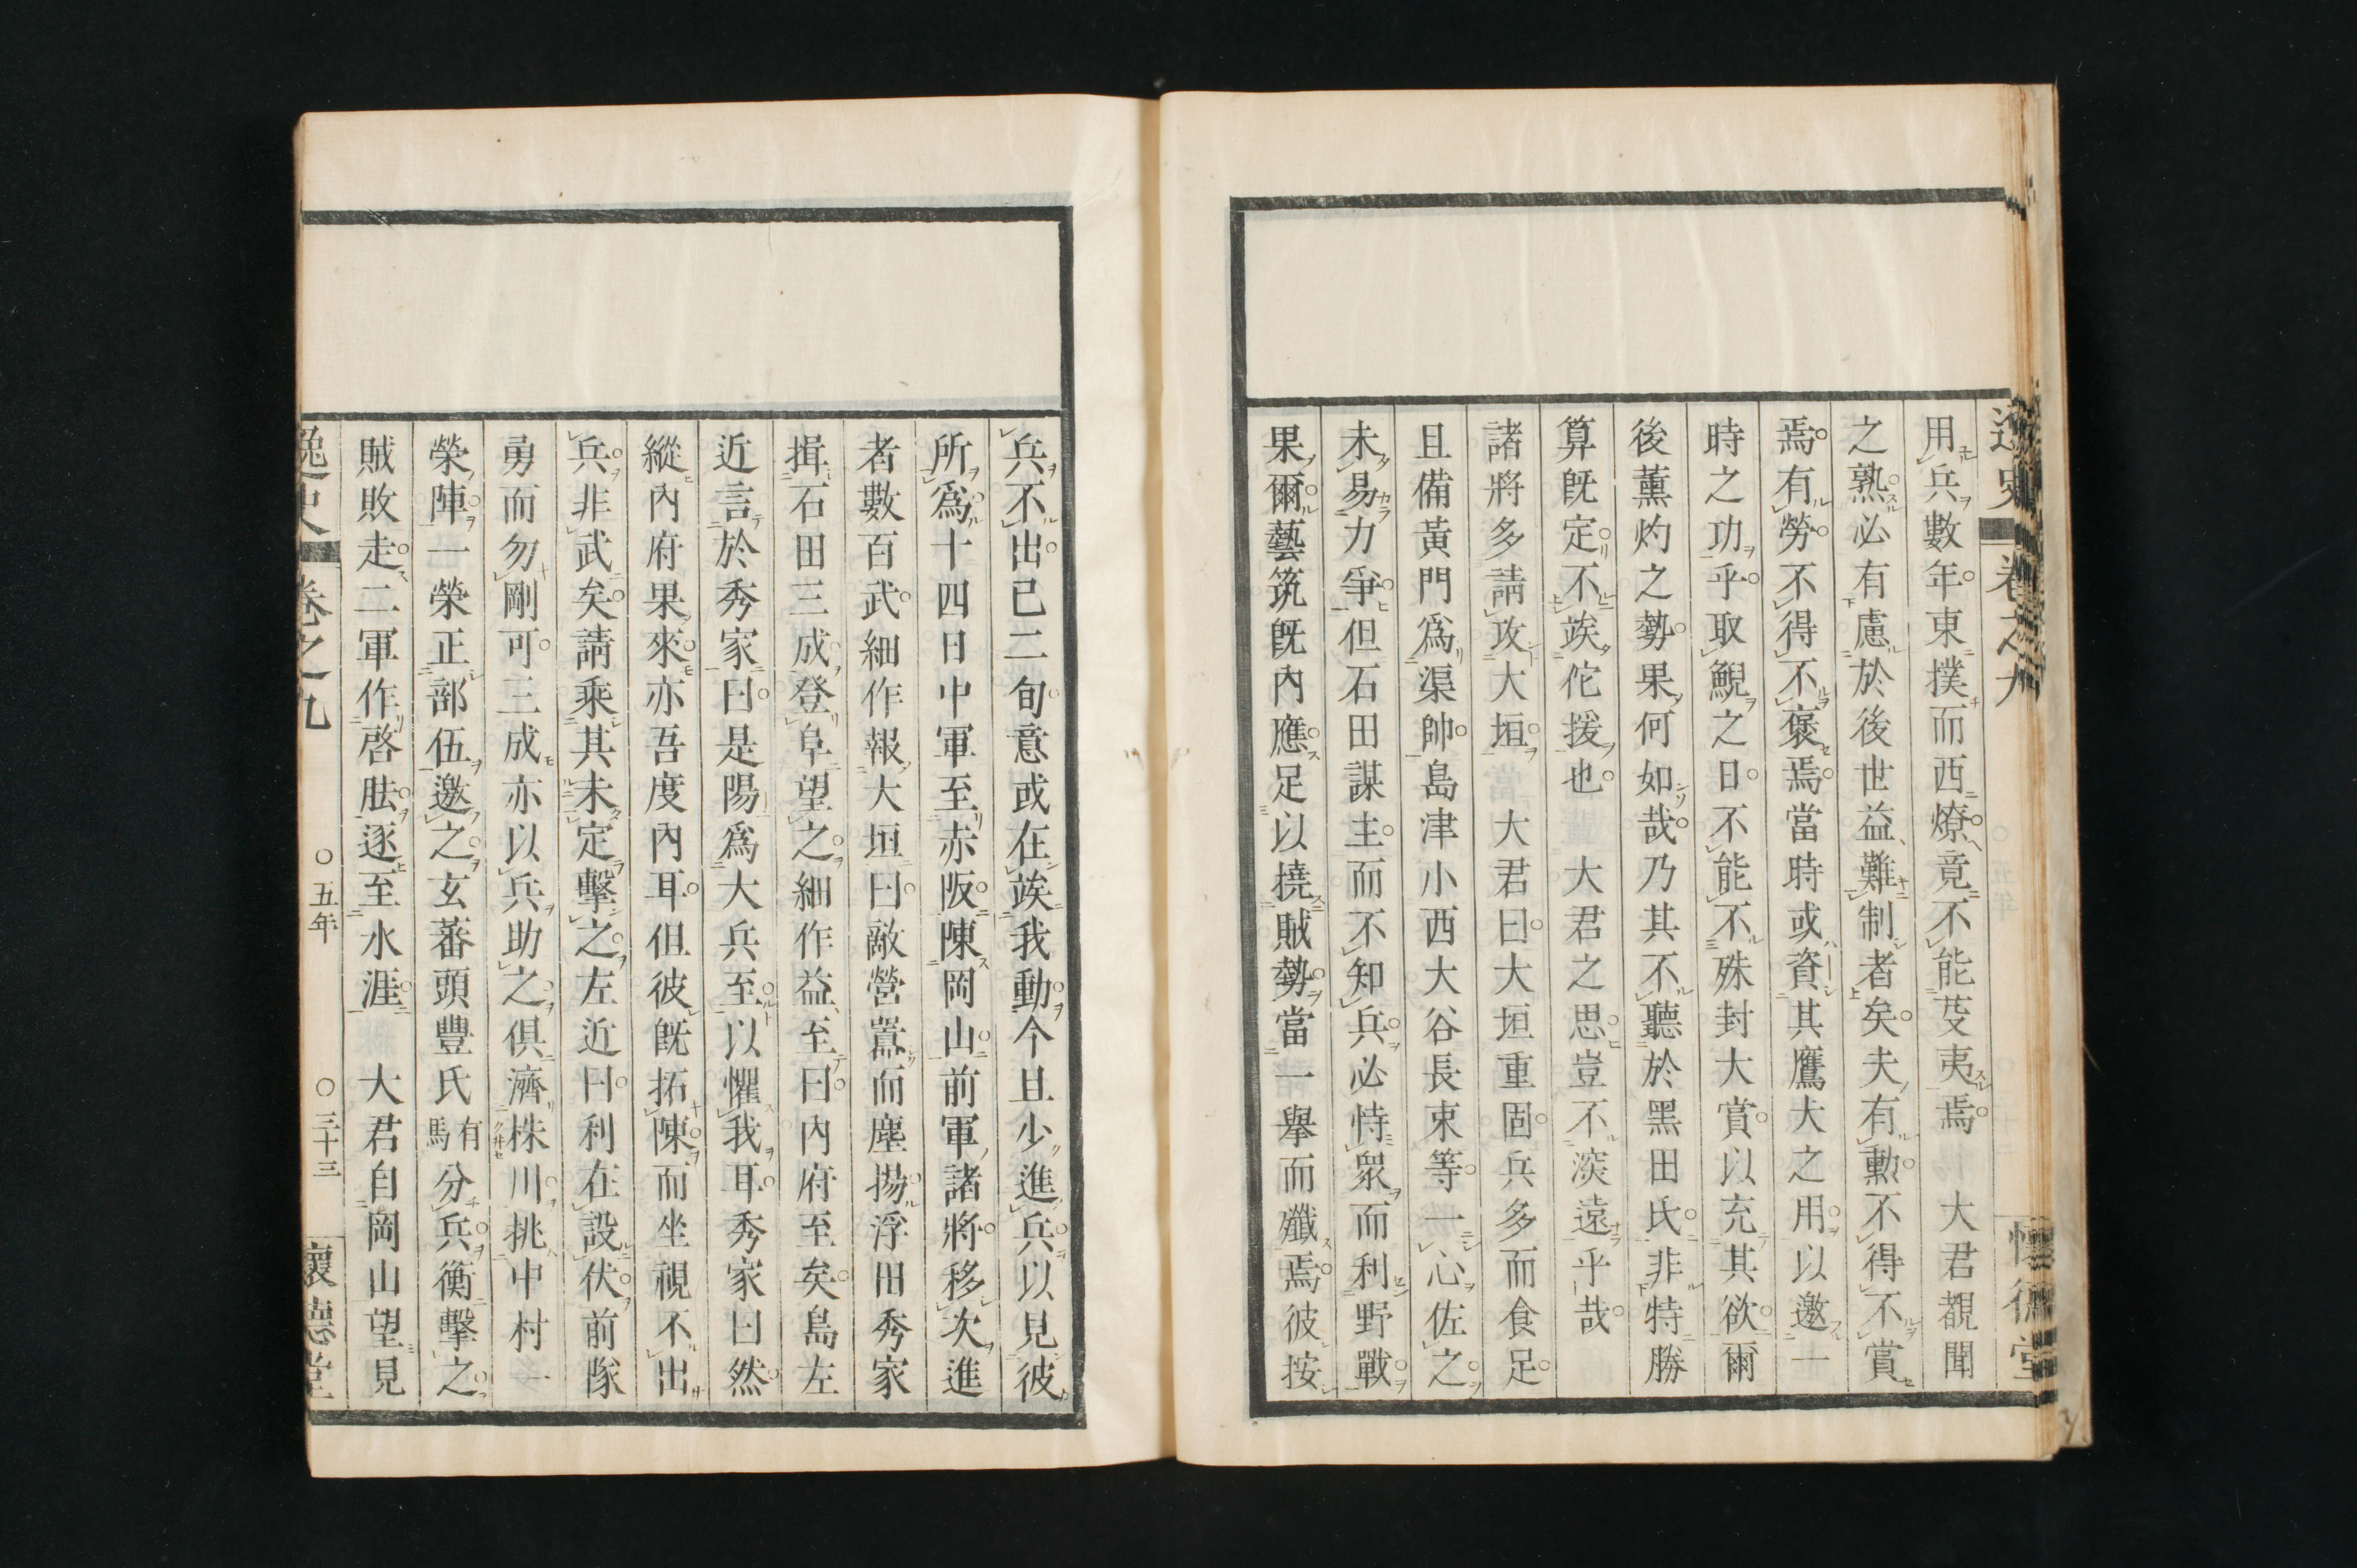 逸史 卷之九 懷德堂
用兵數年東撲而西燎竟不能芟夷焉 大君覩聞
之熟必有慮於後世益難制者矣夫有勳不得不賞
焉有勞不得不褒焉當時或資其鷹犬之用以邀一
時之功乎取鯢之日不能不殊封大賞以充其欲爾
後薰灼之勢果何如哉乃其不聽於黑田氏非特勝
算既定不竢佗援也 大君之思豈不深遠乎哉
諸將多請攻大垣 大君曰大垣重固兵多而食足
且備黃門爲渠帥島津小西大谷長束等一心佐之
未易力爭但石田謀主而不知兵必恃眾而利野戰
果爾藝筑既內應足以撓賊勢當一舉而殲焉彼按
兵不出已二旬意或在竢我動今且少進兵以見彼
所爲十四日中軍至赤阪陳岡山前軍諸將移次進
者數百武細作報大垣曰敵營囂而塵揚浮田秀家
揖石田三成登阜望之細作益至曰內府至矣島左
近言於秀家曰是陽爲大兵至以懼我耳秀家曰然
縱內府果來亦吾度內耳但彼既拓陳而坐視不出
兵非武矣請乘其未定擊之左近曰利在設伏前隊
勇而勿剛可三成亦以兵助之俱濟株川挑中村一
榮陣一榮正部伍邀之玄蕃頭豐氏有馬分兵衡擊之
賊敗走二軍作啓胠逐至水涯 大君自岡山望見
逸史 卷之九 ○五年 ○三十三 懷德堂